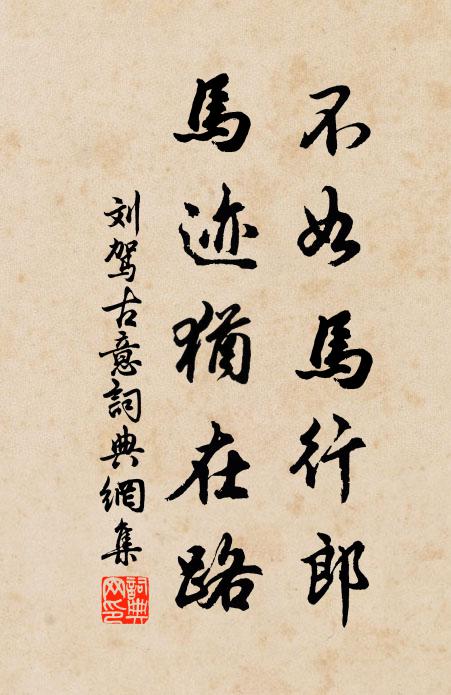 不如馬行郎
馬迹猶在路
刘駕古意詞典網集
詞典
网印